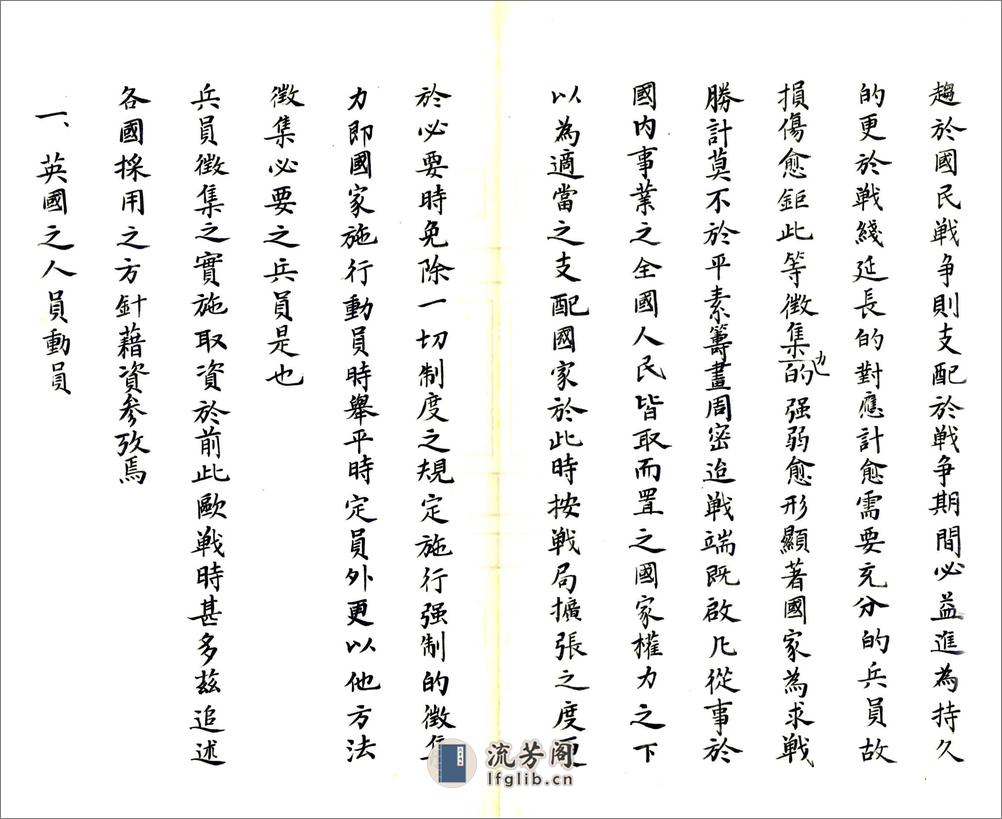 趨於國民戰争則支配於戰争期間必益進為持久
的更於戰綫延長的對應計愈需要充分的兵員故
損傷愈鉅此等徵集力的也强弱愈形顯著國家為求戰
勝計莫不於平素籌畫周密迨戰端既啟凡從事於
國内事業之全國人民皆取而置之國家權力之下
以為適當之支配國家於此時按戰局擴張之度更
於必要時免除一切制度之規定施行强制的徵集
力即國家施行動員時舉平時定員外更以他方法
徵集必要之兵員是也
兵員徵集之實施取資於前此歐戰時甚多茲追述
各國採用之方針藉資參攷焉
一、英國之人員動員
流芳阁
lfglib.cn